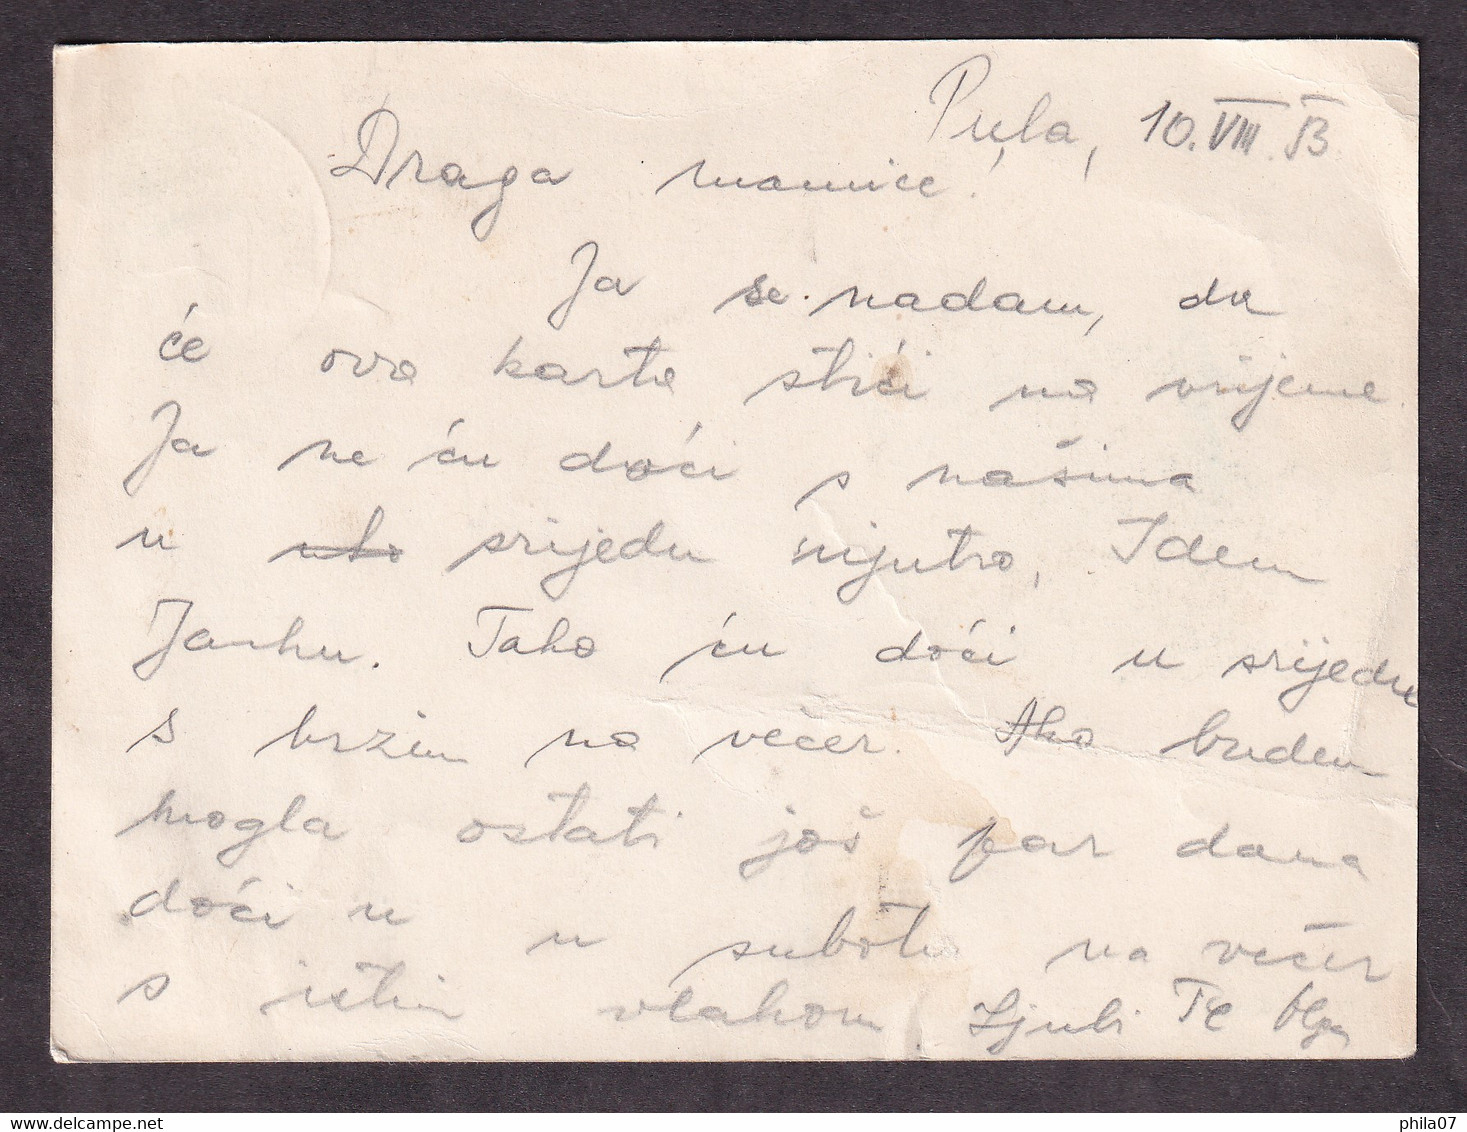 Pula, 10. VIII. 53
Draga mamice!
Ja se nadam, da
će ova karta stići na vrijeme.
Ja ne ću doći s našima
u srijedu ujutro, Idem
Janku. Tako ću doći u srijedu
s brzim na večer. Ako budem
mogla ostati još par dana
doći ću u subotu na večer
s istim vlakom. Ljubi Te Olga
phila07